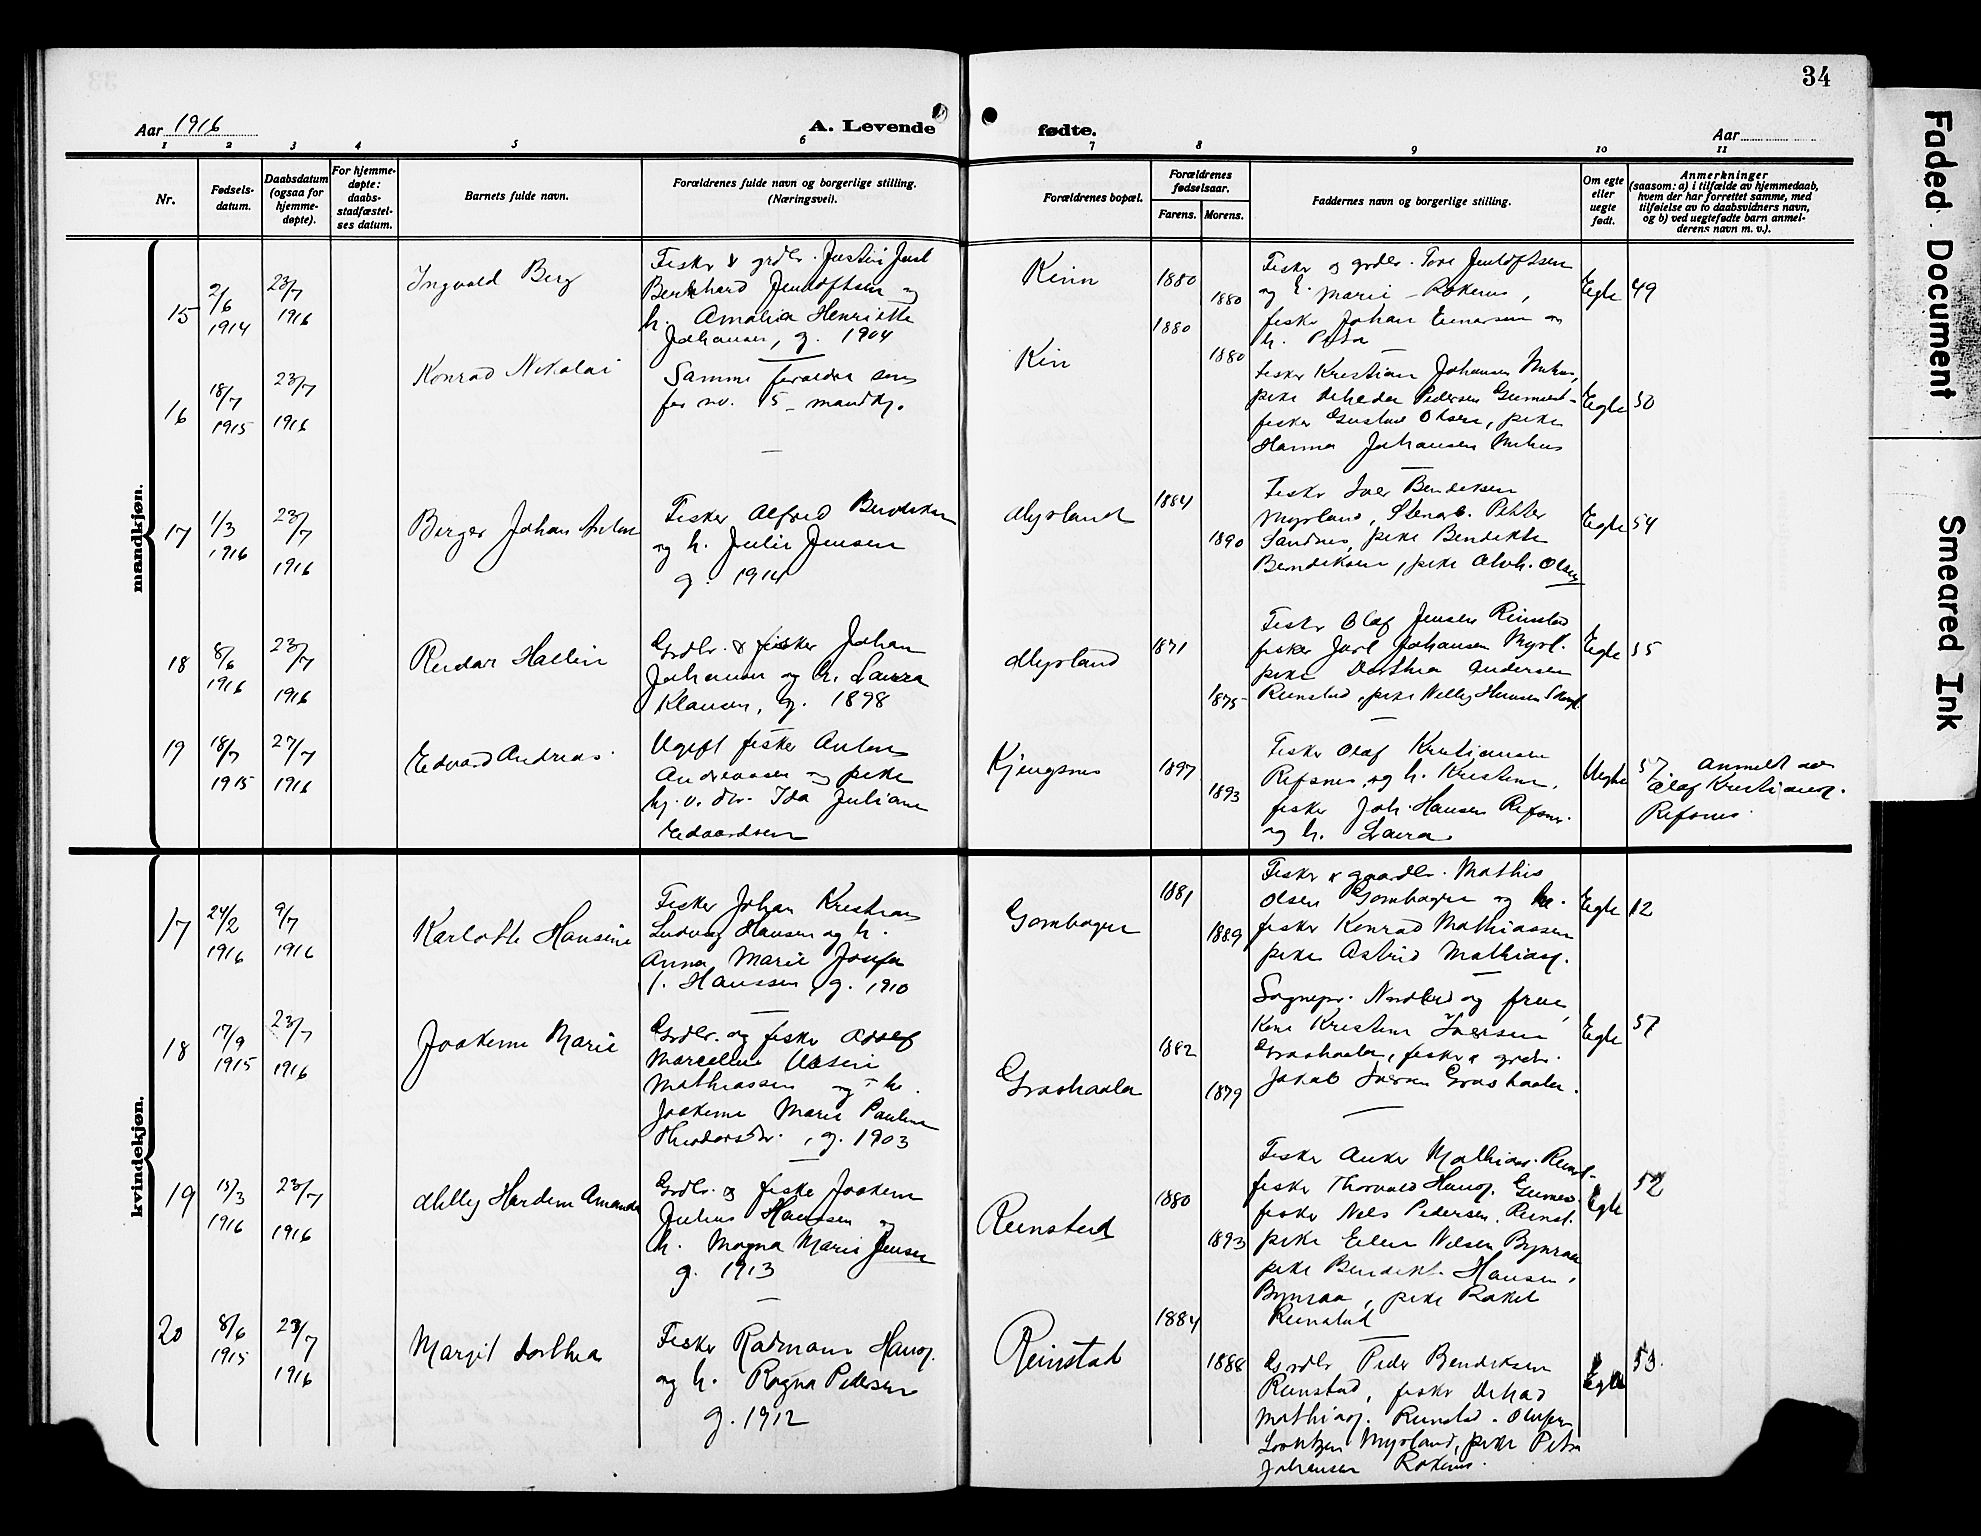 34
Aar 1916
A. Levende
fødte.
Aar
1
2
3
4
5
6
7
8
9
10
11
Nr.
Fødsels-
datum.
Daabsdatum
(ogsaa for
hjemme-
døpte).
For hjemme-
døpte:
daabs-
stadfæstel-
ses datum.
Barnets fulde navn.
Forældrenes fulde navn og borgerlige stilling.
(Næringsvei).
Forældrenes bopæl.
Forældrenes
fødselsaar.
Farens.
Morens.
Faddernes navn og borgerlige stilling.
Om egte
eller
uegte
født.
Anmerkninger
(saasom: a) i tilfælde av hjemmedaab,
hvem der har forrettet samme, med
tilføielse av to daabsvidners navn,
og b) ved uegtefødte barn anmel-
derens navn m. v.).
mandkjøn.
15
2/6
1914
23/7
1916
Ingvald Berg
Fisker & grdbr.
Bernhard og
h. Amalia Henriette
Johansen, g. 1904
Kinn
1880
1880
Fisker og grdbr. Tore
og Marie
fisker Johan Einarsen og
h. Petra
Egte
49
16
18/7
1915
23/7
1916
Konrad Nikolai
Samme forældre som
for nr. 15 mandkj.
Kin
1880
1880
fisker Kristian Johansen
pike Pedersen
fisker Gustav Olsen, pike
Hanna Johansen
Egte
50
17
1/3
1916
23/7
1916
Birger Johan Anton
Fisker Alfred Bendiksen
og h. Julie Jensen
g. 1914
Myrland
1884
1890
Fisker Iver Bendiksen
Myrland,
Sandnes, pike Bendikte
Bendiksen, pike Olsen
Egte
54
18
8/6
1916
23/7
1916
Reidar Hallin
Grdbr. & fisker Johan
Johansen og h. Laura
Klausen, g. 1898
Myrland
1871
1875
Fisker Olaf Jensen Reinstad
fisker Jarl Johansen Myrl.
pike Dorthea Andersen
Reinstad, pike Nelly Hansen
Egte
55
19
18/7
1915
27/7
1916
Edvard Andreas
Ugift fisker Anton
Andreassen og pike
hj. v. Ida Juliane
Edvardsen
Kjengsnes
1897
1893
Fisker Olaf Kristiansen
Refsnes og h. Kristine,
fisker Joh. Hansen Refsnes
og h. Laura
Uegte
57 anmeldt av
Olaf Kristians.
Refsnes
kvindekjøn.
17
24/2
1916
9/7
1916
Karlotte Hansine
Fisker Johan Kristian
Ludvig Hansen og h.
Anna Marie Josefa
f. Hanssen, g. 1910
Gombogen
1881
1889
Fisker & gaardbr. Mathis
Olsen Gombogen og h.
fisker Konrad Mathiassen
pike Astrid Mathias.
Egte
12
18
17/9
1915
23/7
1916
Joakime Marie
Grdbr. og fisker Adolf
Marcelius
Mathiassen og h.
Joakime Marie Pauline
Theodorsdtr., g. 1903
Grashaala
1882
1879
Sognepr. Nordbed og frue,
Kone Kristine Iversen
Grashaala, fisker & grdbr.
Jakob Iversen Grashaala.
Egte
57
19
15/3
1916
23/7
1916
Milly Hardine Amanda
Grdbr. og fisker Joakim
Julius Hanssen og
h. Magna Marie Jensen
g. 1913
Reinstad
1880
1893
Fisker Anker Mathias. Reinst.
fisker Thorvald Hans.
fisker Nils Pedersen Reinst.
pike Ellen Nilsen Bynraa
pike Bendikt. Hansen,
Bynraa, pike Rakel
Reinstad
Egte
52
20
8/6
1915
23/7
1916
Margit Dorthea
Fisker Radmann Hans.
og h. Ragna Pedersen
g. 1912
Reinstad
1884
1888
Grdbr. Peder Bendiksen
Reinstad, fisker
Mathias. Reinstad.
Myrland, pike Petra
Johansen
Egte
53.
Faded Document
Smeared Ink